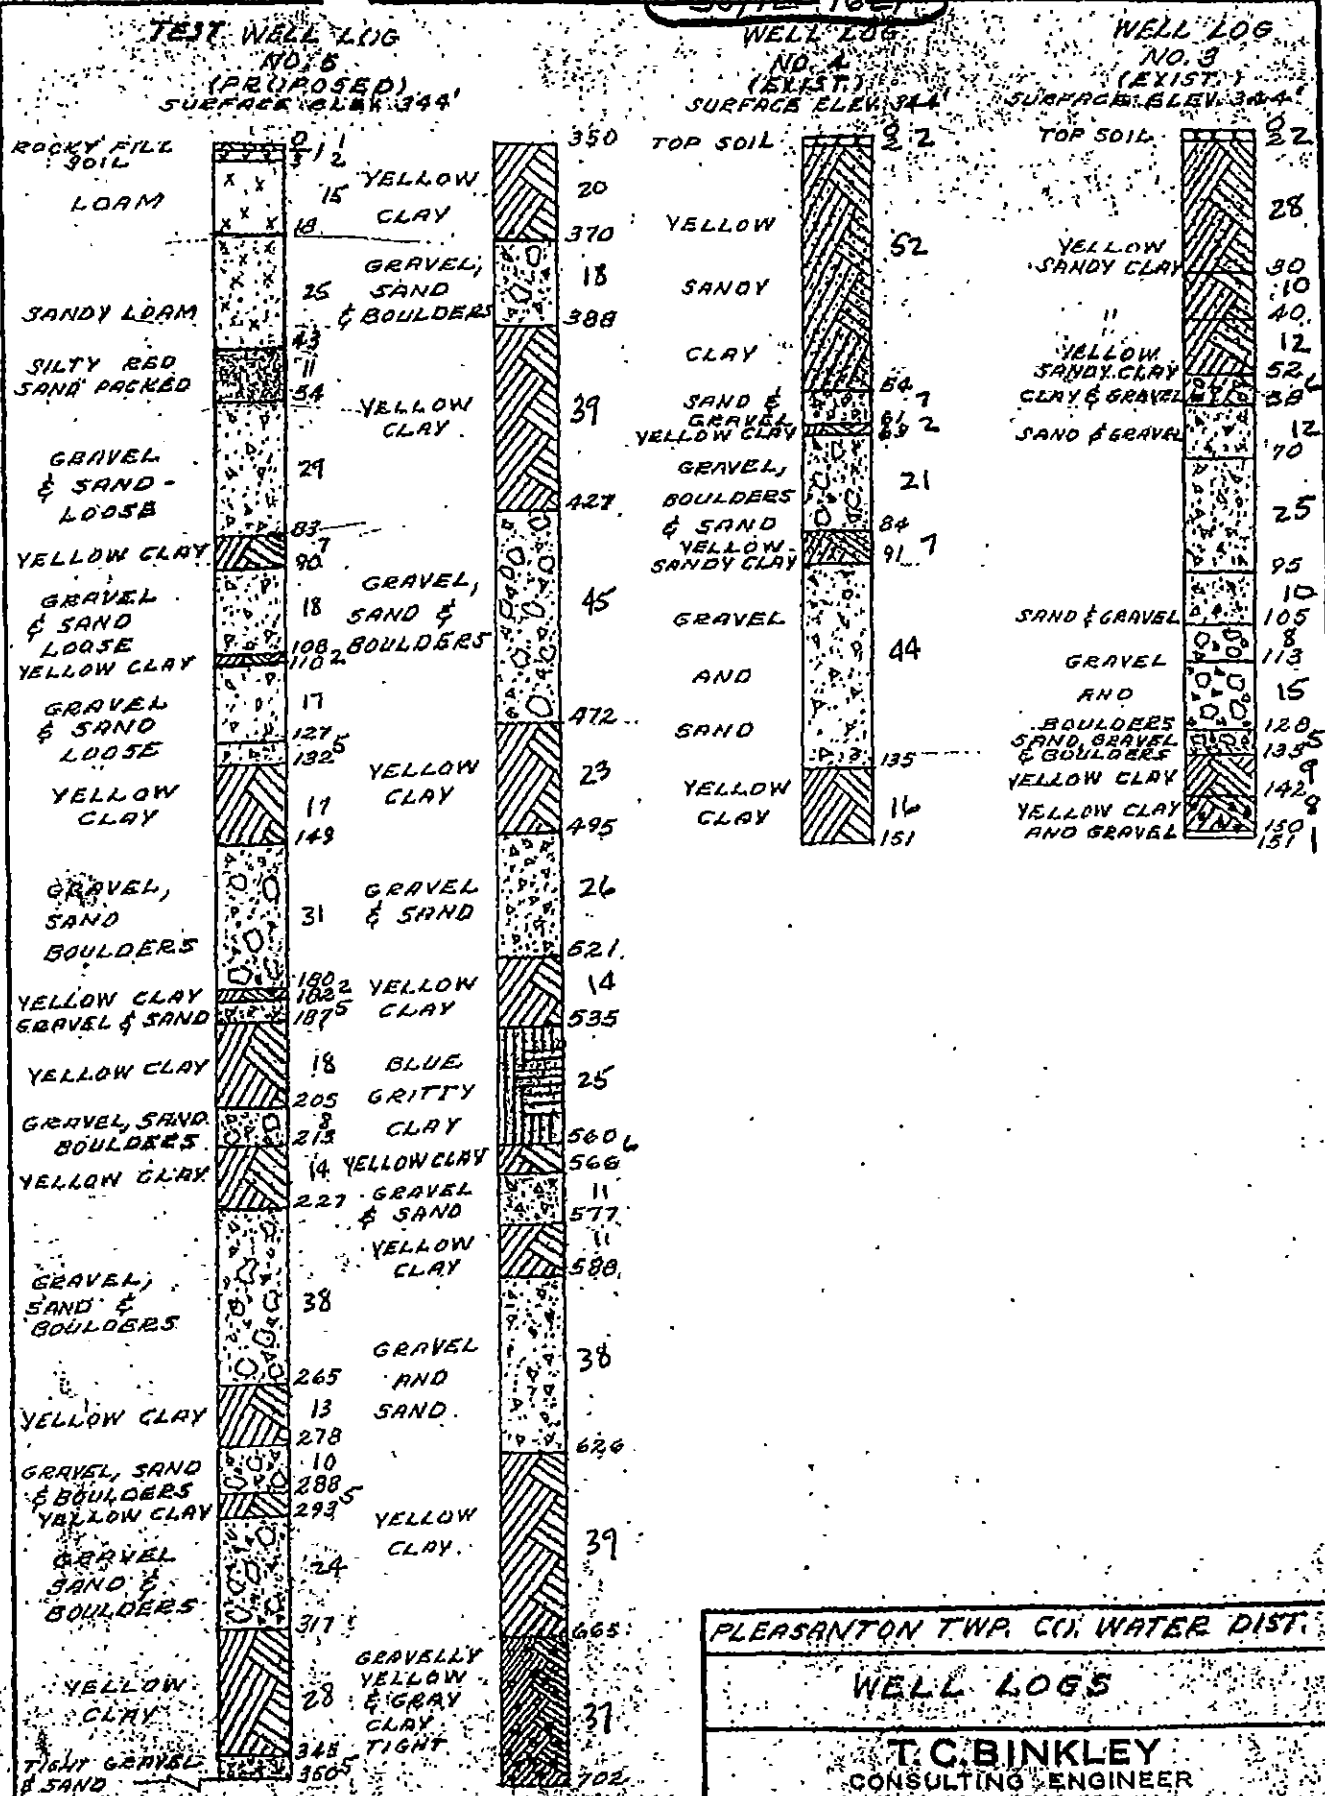 TEST WELL LOG
NO. 5
(PROPOSED)
SURFACE ELEV. 344'
ROCKY FILL
SOIL
0
1
3
2
LOAM
15
18
SANDY LOAM
25
43
SILTY RED
SAND PACKED
11
54
GRAVEL
& SAND -
LOOSE
29
83
YELLOW CLAY
7
90
GRAVEL
& SAND
LOOSE
18
108
YELLOW CLAY
110 2
GRAVEL
& SAND
LOOSE
17
127
5
132
YELLOW
CLAY
17
149
GRAVEL,
SAND
BOULDERS
31
180
YELLOW CLAY
182 2
GRAVEL & SAND
187 5
YELLOW CLAY
18
205
GRAVEL, SAND
BOULDERS
8
213
YELLOW CLAY
14
227
GRAVEL,
SAND &
BOULDERS
38
265
YELLOW CLAY
13
278
GRAVEL, SAND
& BOULDERS
10
288
YELLOW CLAY
293 5
GRAVEL
SAND &
BOULDERS
24
317
YELLOW
CLAY
28
345
TIGHT GRAVEL
& SAND
350 5
350
YELLOW
CLAY
20
370
GRAVEL,
SAND
& BOULDERS
18
388
YELLOW
CLAY
39
427
GRAVEL,
SAND &
BOULDERS
45
472
YELLOW
CLAY
23
495
GRAVEL
& SAND
26
521
YELLOW
CLAY
14
535
BLUE
GRITTY
CLAY
25
560
YELLOW CLAY
6
566
GRAVEL
& SAND
11
577
YELLOW
CLAY
11
588
GRAVEL
AND
SAND
38
626
YELLOW
CLAY
39
665
GRAVELLY
YELLOW
& GRAY
CLAY
TIGHT
37
702
WELL LOG
NO. 4
(EXIST.)
SURFACE ELEV. 344'
TOP SOIL
0
2 2
YELLOW
SANDY
CLAY
52
54
SAND &
GRAVEL
7
61
YELLOW CLAY
63 2
GRAVEL,
BOULDERS
& SAND
21
84
YELLOW
SANDY CLAY
91 7
GRAVEL
AND
SAND
44
135
YELLOW
CLAY
16
151
WELL LOG
NO. 3
(EXIST.)
SURFACE ELEV. 344'
TOP SOIL
0
2 2
YELLOW
SANDY CLAY
28
30
"
10
40
YELLOW
SANDY CLAY
12
52
CLAY & GRAVEL
58 6
SAND & GRAVEL
12
70
25
95
SAND & GRAVEL
10
105
GRAVEL
AND
BOULDERS
8
113
15
128
SAND, GRAVEL
& BOULDERS
133 5
YELLOW CLAY
9
142
YELLOW CLAY
AND GRAVEL
8
150
151 1
PLEASANTON TWP. CO. WATER DIST.
WELL LOGS
T. C. BINKLEY
CONSULTING ENGINEER